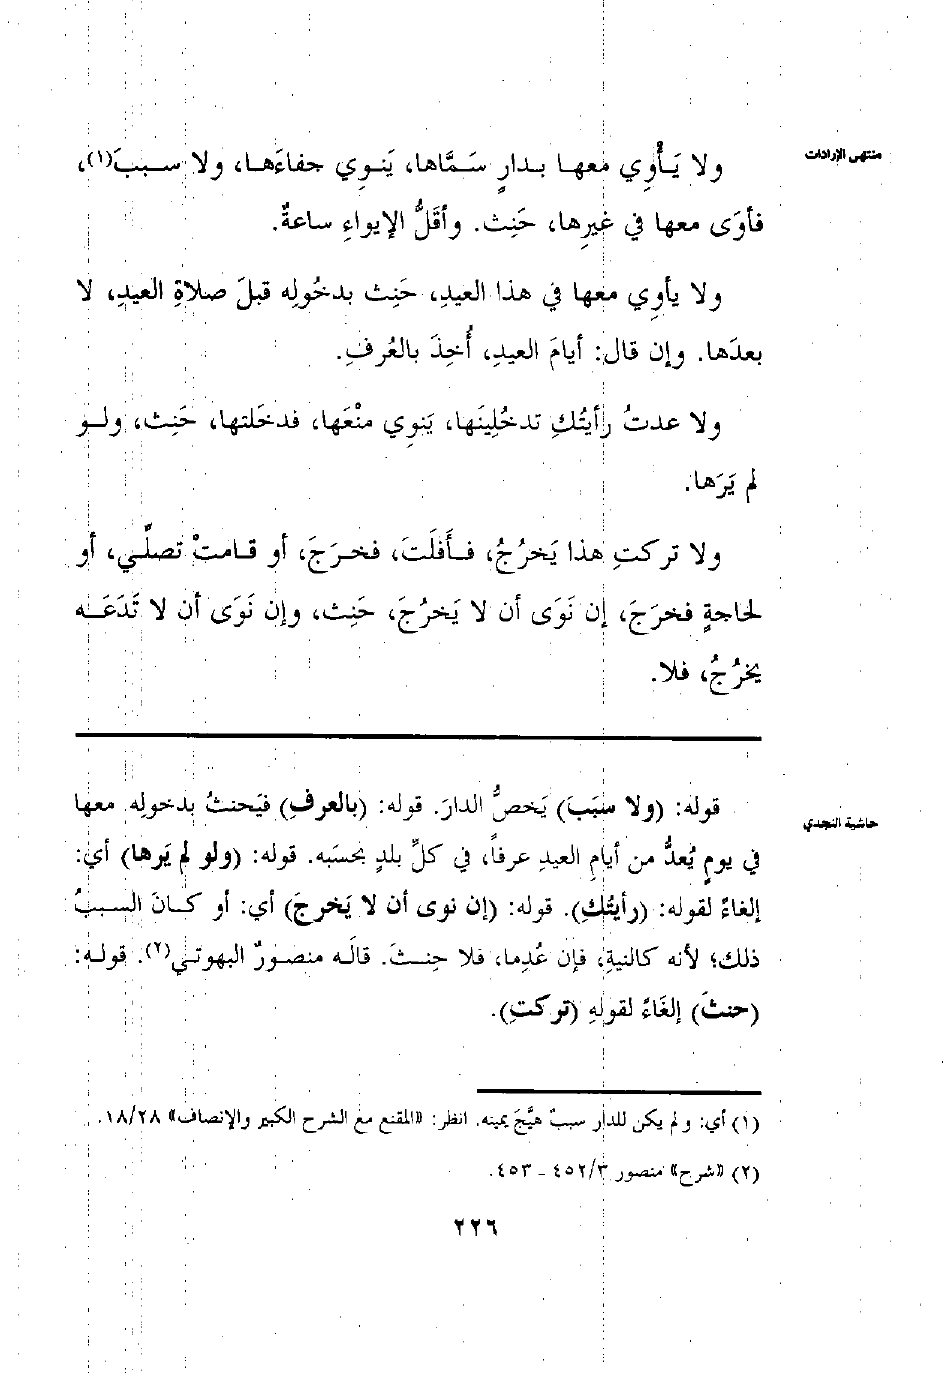 منتهى الإرادات
ولا يَأْوِي معها بدارٍ سَمَّاها، يَنوِي جفاءَها، ولا سببَ(١)،
فأوَى معها في غيرِها، حَنِث. وأقَلُّ الإيواءِ ساعةٌ.
ولا يأوِي معها في هذا العيدِ، حَنِث بدخُولِه قبلَ صلاةِ العيدِ، لا
بعدَها. وإن قال: أيامَ العيدِ، أُخِذَ بالعُرفِ.
ولا عدتُ رأيتُكِ تدخُلِينَها، يَنوِي منْعَها، فدخَلتها، حَنِث، ولو
لم يَرَها.
ولا تركتِ هذا يَخرُجُ، فأَفلَتَ، فخرَجَ، أو قامتْ تصلِّي، أو
لحاجةٍ فخرَجَ، إن نَوَى أن لا يَخرُجَ، حَنِث، وإن نَوَى أن لا تَدَعَه
يخرُجُ، فلا.
حاشية النجدي
قوله: (ولا سبَبَ) يَخصُّ الدارَ. قوله: (بالعرفِ) فيَحنثُ بدخولِه معها
في يومٍ يُعدُّ من أيامِ العيدِ عرفاً، في كلِّ بلدٍ بحسَبه. قوله: (ولو لم يَرها) أي:
إلغاءً لقوله: (رأيتُكِ). قوله: (إن نوى أن لا يَخرجَ) أي: أو كانَ السببُ
ذلك؛ لأنه كالنيةِ، فإن عُدِما، فلا حِنثَ. قالَه منصورٌ البهوتي(٢). قوله:
(حنثَ) إلغَاءً لقولهِ (تركتِ).
(١) أي: ولم يكن للدار سببٌ هيَّجَ يمينه. انظر: «المقنع مع الشرح الكبير والإنصاف» ١٨/٢٨.
(٢) «شرح» منصور ٤٥٢/٣ ـ ٤٥٣.
٢٢٦